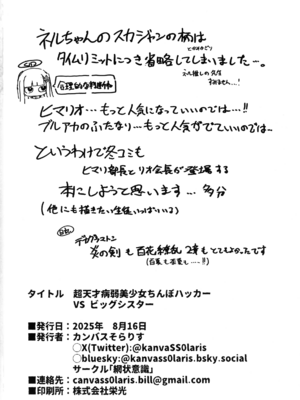 ネルちゃんのスカジャンの柄は
タイムリミットにつき省略してしまいました…。
合理的な判断
ヒマリオ…もっと人気になっていいのでは…!!
ブルアカのふたなり…もっと人気がでていいのでは~
というわけで冬コミも
ヒマリ部長とリオ会長が登場する
本にしようと思います…多分
(他にも描きたい生徒いっぱいいる)
炎の剣も百花繚乱2章もとてもよかったです
タイトル 超天才病弱美少女ちんぽハッカー
VS ビッグシスター
■発行日：2025年 8月16日
■発行者：カンバスそらりす
○X(Twitter):@kanvaSS0laris
○bluesky:@kanvass0laris.bsky.social
サークル「網状意識」
■連絡先：canvass0laris.bill@gmail.com
■印刷所：株式会社栄光